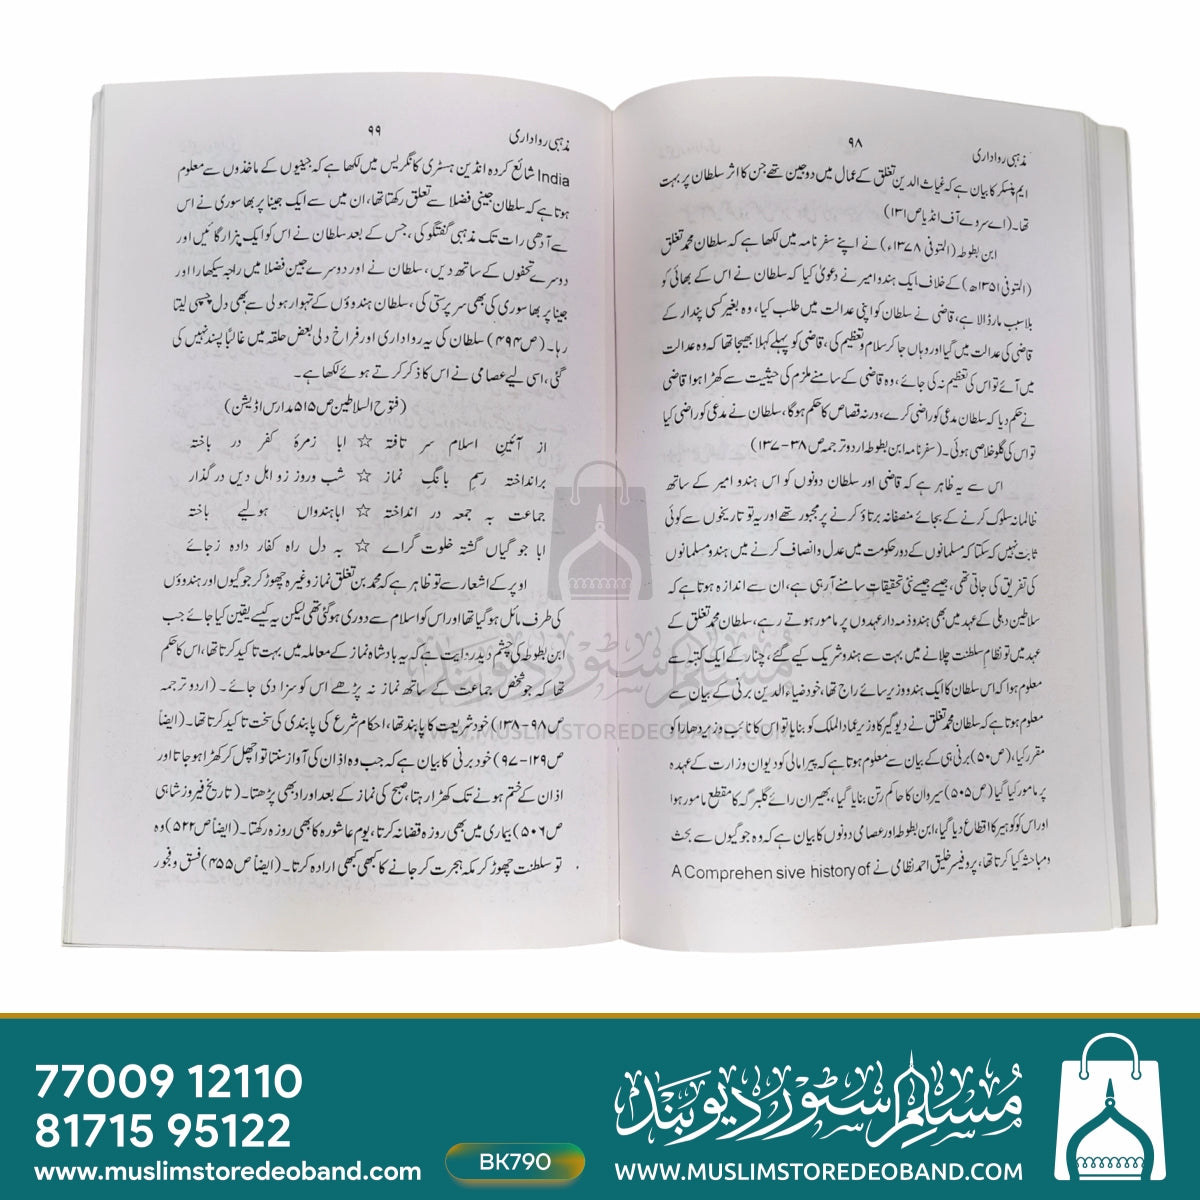 مذہبی رواداری ۹۸
ایم پنسکر کا بیان ہے کہ غیاث الدین تغلق کے عمال میں دو جین تھے جن کا اثر سلطان پر بہت
تھا۔ (اے سروے آف انڈیا ص ۱۳۱)
ابن بطوطہ (المتوفی ۱۳۷۸ء) نے اپنے سفر نامہ میں لکھا ہے کہ سلطان محمد تغلق
(المتوفی ۱۳۵۱ھ) کے خلاف ایک ہندو امیر نے دعویٰ کیا کہ سلطان نے اس کے بھائی کو
بلا سبب مار ڈالا ہے، قاضی نے سلطان کو اپنی عدالت میں طلب کیا، وہ بغیر کسی پندار کے
قاضی کی عدالت میں گیا اور وہاں جا کر سلام و تعظیم کی، قاضی کو پہلے کہلا بھیجا تھا کہ وہ عدالت
میں آئے تو اس کی تعظیم نہ کی جائے، وہ قاضی کے سامنے ملزم کی حیثیت سے کھڑا ہوا قاضی
نے حکم دیا کہ سلطان مدعی کو راضی کرے، ورنہ قصاص کا حکم ہوگا، سلطان نے مدعی کو راضی کیا
تو اس کی گلو خلاصی ہوئی۔ (سفر نامہ ابن بطوطہ اردو ترجمہ ص ۳۸-۱۳۷)
اس سے یہ ظاہر ہے کہ قاضی اور سلطان دونوں کو اس ہندو امیر کے ساتھ
ظالمانہ سلوک کرنے کے بجائے منصفانہ برتاؤ کرنے پر مجبور تھے اور یہ تو تاریخوں سے کوئی
ثابت نہیں کر سکتا کہ مسلمانوں کے دور حکومت میں عدل و انصاف کرنے میں ہندو مسلمانوں
کی تفریق کی جاتی تھی، جیسے جیسے نئی تحقیقات سامنے آ رہی ہے، ان سے اندازہ ہوتا ہے کہ
سلاطین دہلی کے عہد میں بھی ہندو ذمہ دار عہدوں پر مامور ہوتے رہے، سلطان محمد تغلق کے
عہد میں تو نظام سلطنت چلانے میں بہت سے ہندو شریک کیے گئے، چنار کے ایک کتبہ سے
معلوم ہوا کہ اس سلطان کا ایک ہندو وزیر سائے راج تھا، خود ضیاء الدین برنی کے بیان سے
معلوم ہوتا ہے کہ سلطان محمد تغلق نے دیوگیر کا وزیر عماد الملک کو بنایا تو اس کا نائب وزیر دھارا کو
مقرر کیا، (ص ۵۰) برنی ہی کے بیان سے معلوم ہوتا ہے کہ پیرا مالی کو دیوان وزارت کے عہدہ
پر مامور کیا گیا (ص ۵۰۵) سیروان کا حاکم رتن بنایا گیا، بھیران رائے گلبرگہ کا مقطع مامور ہوا
اور اس کو کوہیر کا اقطاع دیا گیا، ابن بطوطہ اور عصامی دونوں کا بیان ہے کہ وہ جوگیوں سے بحث
ومباحثہ کیا کرتا تھا، پروفیسر خلیق احمد نظامی نے A Comprehen sive history of
مذہبی رواداری ۹۹
India شائع کردہ انڈین ہسٹری کانگریس میں لکھا ہے کہ جینیوں کے ماخذوں سے معلوم
ہوتا ہے کہ سلطان جینی فضلا سے تعلق رکھتا تھا، ان میں سے ایک جینا پر بھا سوری نے اس
سے آدھی رات تک مذہبی گفتگو کی، جس کے بعد سلطان نے اس کو ایک ہزار گائیں اور
دوسرے تحفوں کے ساتھ دیں، سلطان نے اور دوسرے جین فضلا میں راجہ سیکھارا اور
جینا پر بھا سوری کی بھی سرپرستی کی، سلطان ہندوؤں کے تہوار ہولی سے بھی دل چسپی لیتا
رہا۔ (ص ۴۹۴) سلطان کی یہ رواداری اور فراخ دلی بعض حلقہ میں غالباً پسند نہیں کی
گئی، اسی لیے عصامی نے اس کا ذکر کرتے ہوئے لکھا ہے۔
(فتوح السلاطین ص ۵۱۵ مدارس اڈیشن)
از آئینِ اسلام سر تافتہ ☆ ابا زمرۂ کفر در باختہ
برانداختہ رسمِ بانگِ نماز ☆ شب وروز زو اہل دیں در گداز
جماعت بہ جمعہ در انداختہ ☆ اباہندواں ہولیے باختہ
ابا جو گیاں گشتہ خلوت گراے ☆ بہ دل راہ کفار دادہ زجائے
اوپر کے اشعار سے تو ظاہر ہے کہ محمد بن تغلق نماز وغیرہ چھوڑ کر جوگیوں اور ہندوؤں
کی طرف مائل ہو گیا تھا اور اس کو اسلام سے دوری ہو گئی تھی لیکن یہ کیسے یقین کیا جائے جب
ابن بطوطہ کی چشم دید روایت ہے کہ یہ بادشاہ نماز کے معاملہ میں بہت تاکید کرتا تھا، اس کا حکم
تھا کہ جو شخص جماعت کے ساتھ نماز نہ پڑھے اس کو سزا دی جائے۔ (اردو ترجمہ
ص ۹۸-۱۳۸) خود شریعت کا پابند تھا، احکام شرع کی پابندی کی سخت تاکید کرتا تھا۔ (ایضاً
ص ۱۲۹-۹۷) خود برنی کا بیان ہے کہ جب وہ اذان کی آواز سنتا تو اچھل کر کھڑا ہو جاتا اور
اذان کے ختم ہونے تک کھڑا رہتا، صبح کی نماز کے بعد اوراد بھی پڑھتا۔ (تاریخ فیروز شاہی
ص ۵۰۶) بیماری میں بھی روزہ قضا نہ کرتا، یوم عاشورہ کا بھی روزہ رکھتا۔ (ایضاً ص ۵۲۲) وہ
تو سلطنت چھوڑ کر مکہ ہجرت کر جانے کا کبھی کبھی ارادہ کرتا۔ (ایضاً ص ۴۵۵) فسق و فجور
مسلم سٹور دیوبند
WWW.MUSLIMSTOREDEOBAND.COM
77009 12110
81715 95122
www.muslimstoredeoband.com
BK790
مسلم سٹور دیوبند
WWW.MUSLIMSTOREDEOBAND.COM